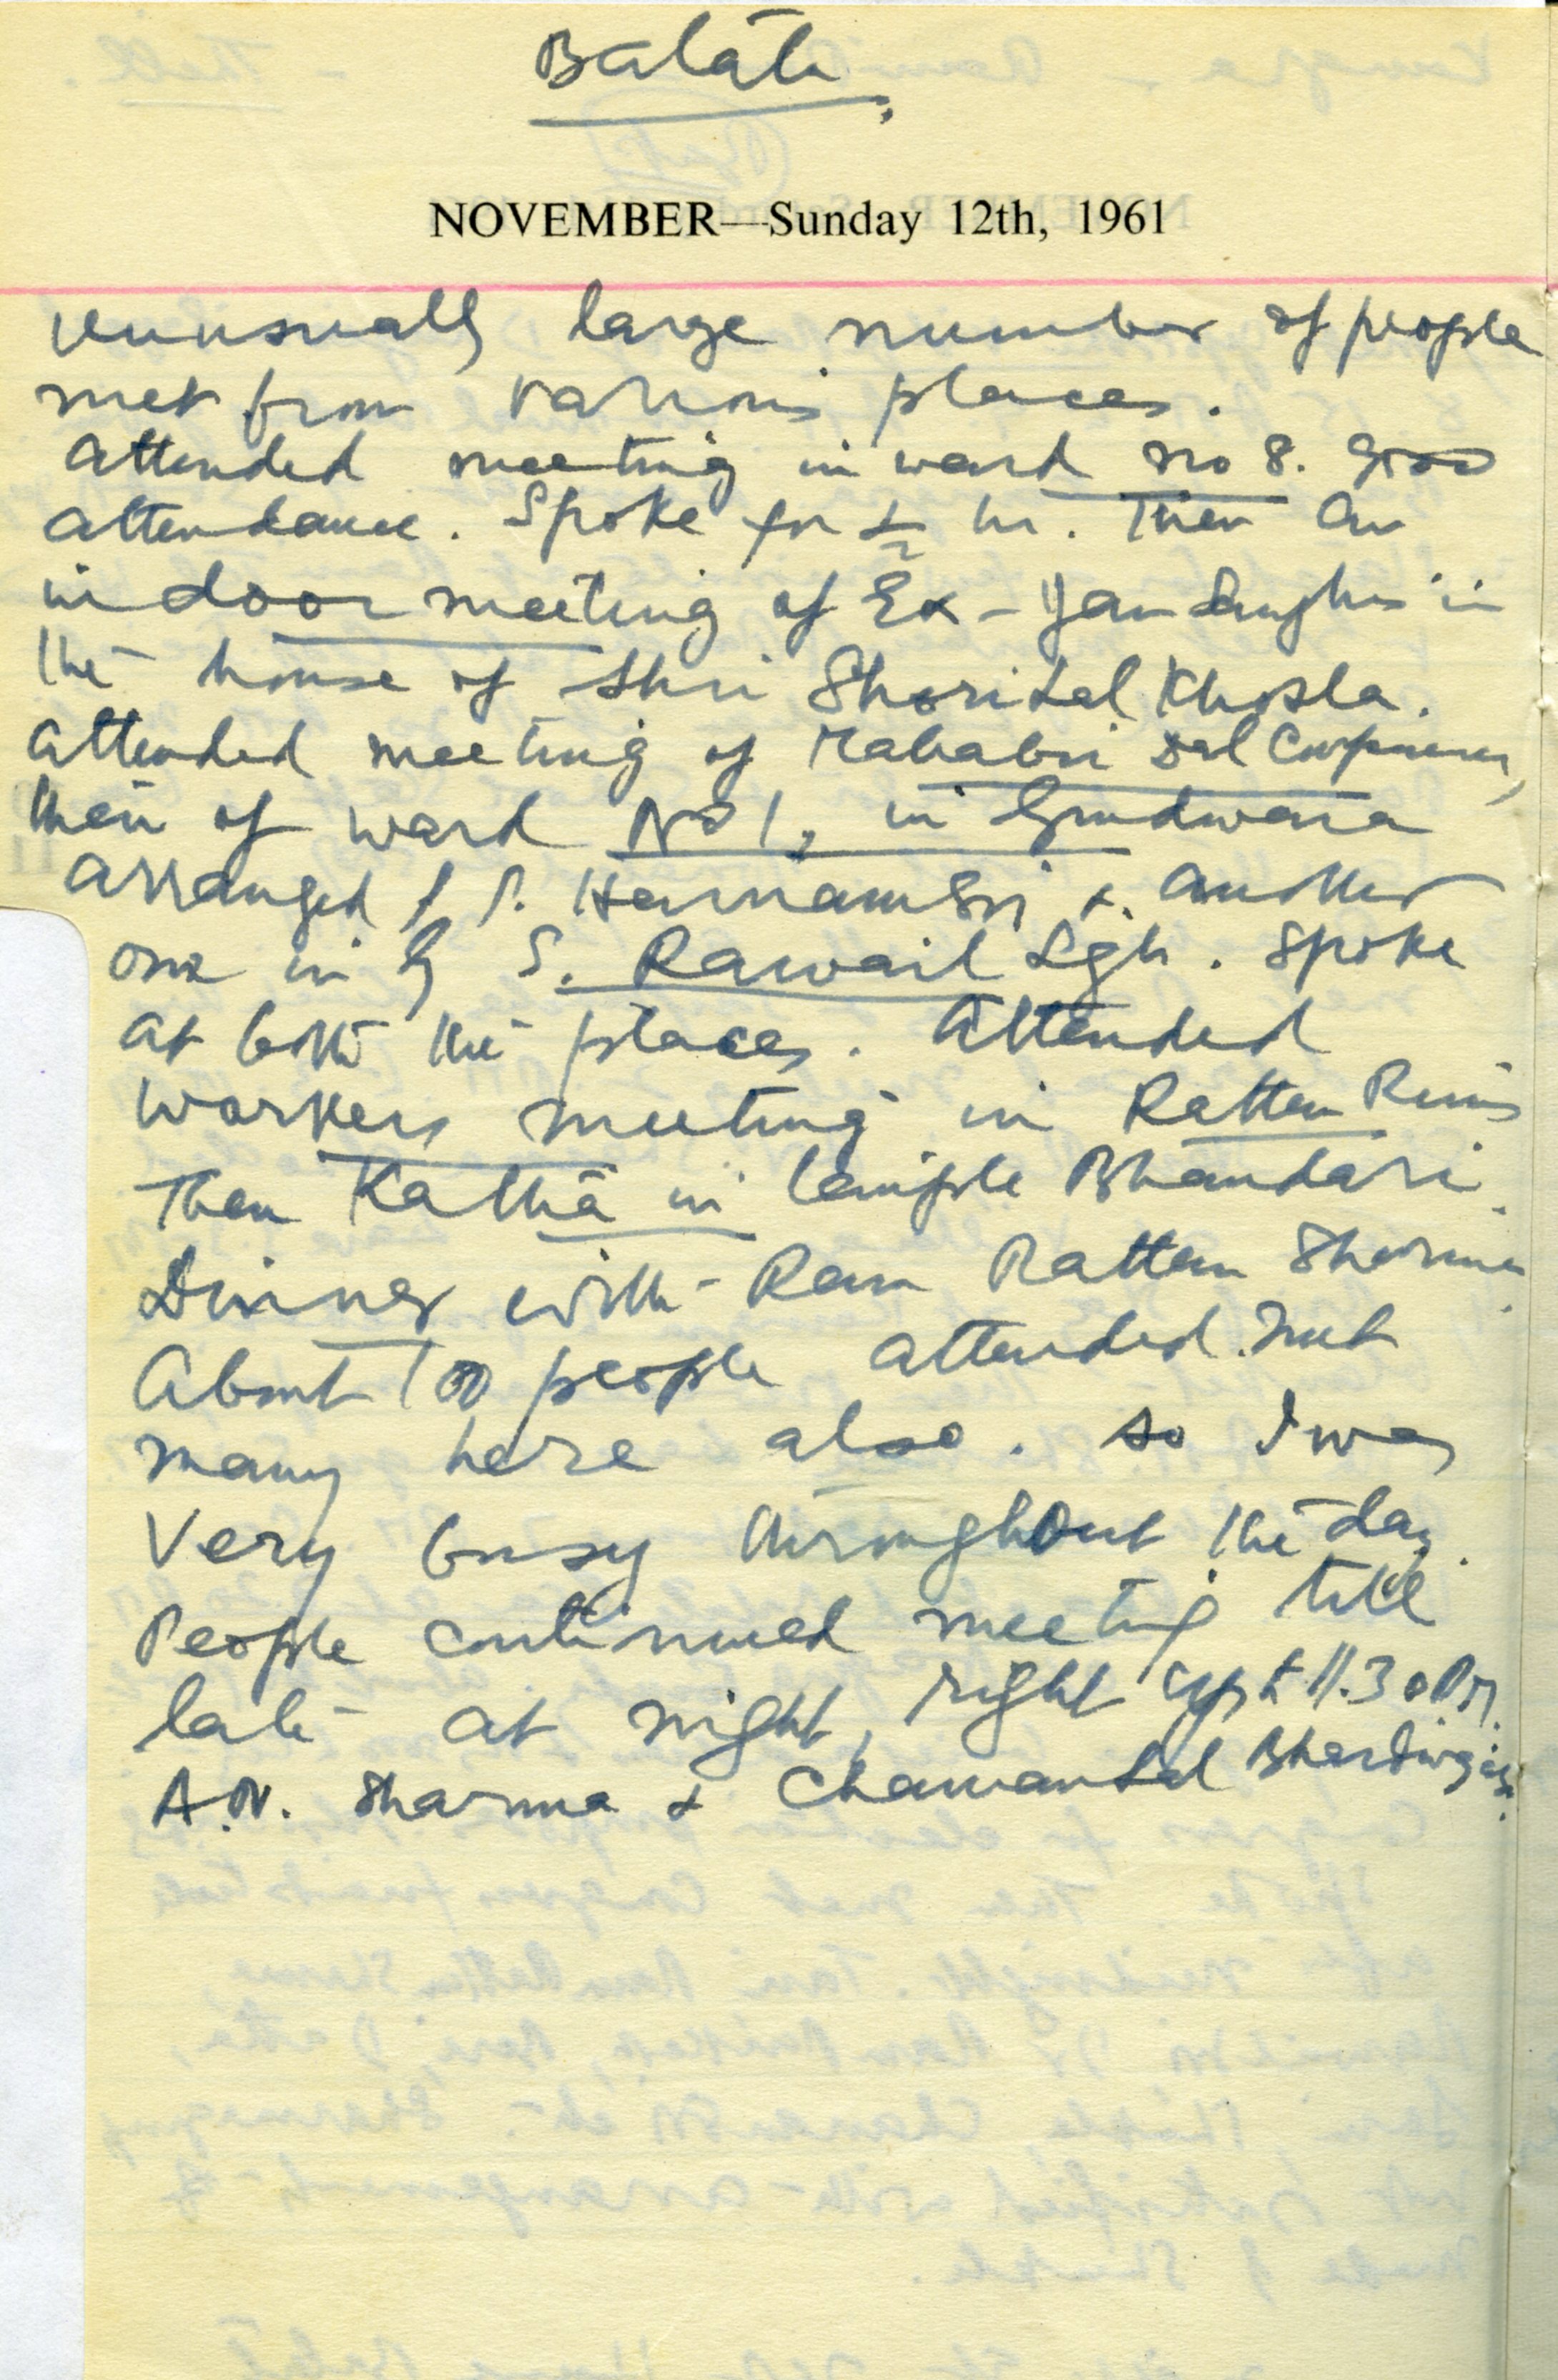 Batala
NOVEMBER—Sunday 12th, 1961
Unusually large number of people
met from various places.
Attended meeting in ward no 8. Good
attendance. Spoke for ½ hr. Then an
indoor meeting of Ex-Jan Sanghis in
the house of Shri Shori Lal Khosla.
Attended meeting of Mahabir Dal
then of ward No 1, in Gurdwara
arranged by S. Harnam & another
one in by S. Rawail Sgh. Spoke
at both the places. Attended
workers meeting in Rattan
Then Katha in temple Bhandari.
Dinner with Ram Rattan Sharma.
About 100 people attended. met
many here also. So I was
very busy throughout the day.
People continued meeting till
late at night, right upto 11.30 PM.
A.N. Sharma & Chaman Lal